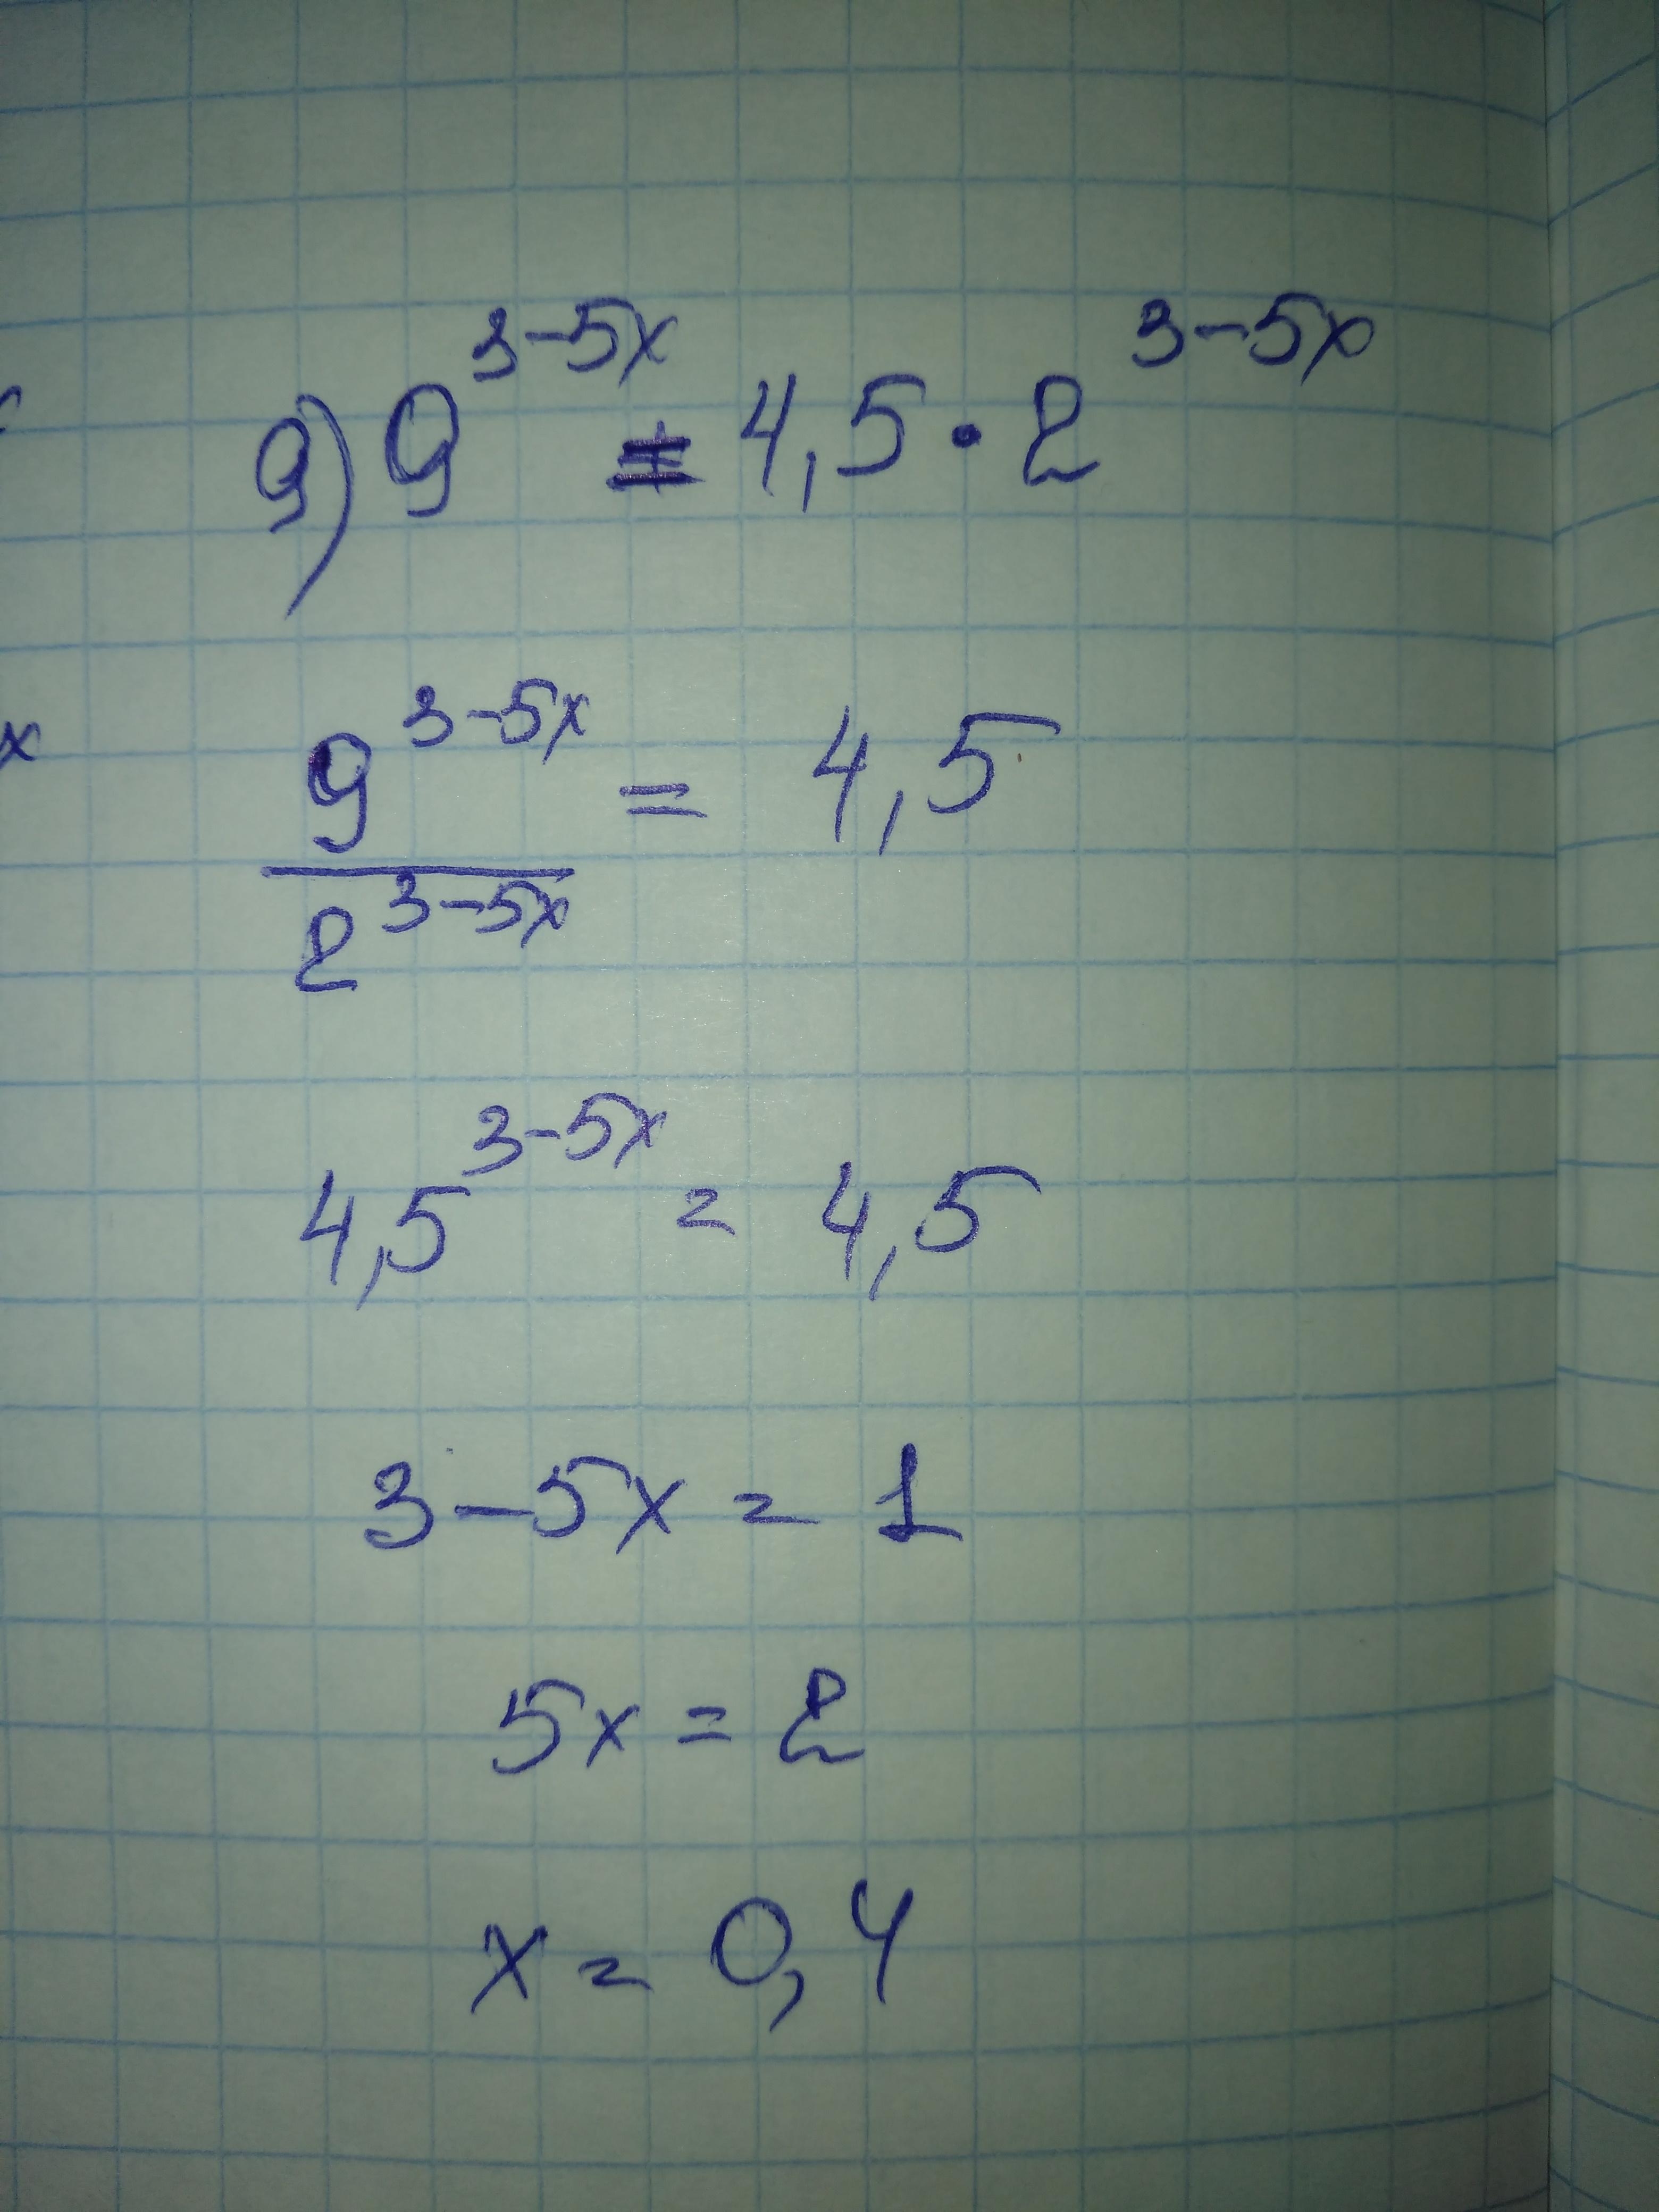 9) 9^{3-5x} = 4,5 · 2^{3-5x}
\frac{9^{3-5x}}{2^{3-5x}} = 4,5
x
4,5^{3-5x} = 4,5
3-5x = 1
5x = 2
x = 0,4